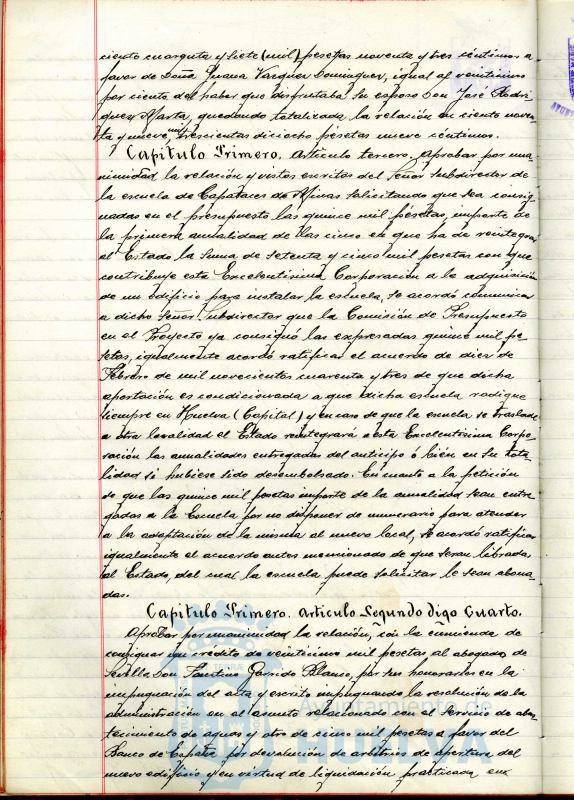 ciento cuarenta y siete (mil) pesetas noventa y tres céntimos a
favor de Doña Juana Vazquez Dominguez, igual al veinticinco
por ciento del haber que disfrutaba su esposo Don José Rodri-
guez Marta, quedando totalizada la relación en ciento noven-
ta y nueve mil trescientas dieciocho pesetas nueve céntimos.
Capítulo Primero. Artículo tercero. Aprobar por una-
nimidad la relación y vistos escritos del Señor Subdirector de
la escuela de Capataces de Minas solicitando que sea consig-
nadas en el presupuesto las quince mil pesetas, importe de
la primera anualidad de las cinco en que ha de reintegrar
al Estado la suma de setenta y cinco mil pesetas con que
contribuye esta Excelentísima Corporación a la adquisición
de un edificio para instalar la escuela, se acordó comunicar
a dicho Señor Subdirector que la Comisión de Presupuesto
en el Proyecto ya consignó las expresadas quince mil pe-
setas, igualmente acordó ratificar el acuerdo de diez de
Febrero de mil novecientos cuarenta y tres de que dicha
aportación es condicionada a que dicha escuela radique
siempre en Huelva (Capital) y en caso de que la escuela se traslade
a otra localidad el Estado reintegrará a esta Excelentísima Corpo-
ración las anualidades entregadas del anticipo ó bien en su tota-
lidad si hubiese sido desembolsado. En cuanto a la petición
de que las quince mil pesetas importe de la anualidad sean entre-
gadas a la Escuela por no disponer de numerario para atender
a la adaptación de la misma al nuevo local, se acordó ratificar
igualmente el acuerdo antes mencionado de que seran librada
al Estado, del cual la escuela puede solicitar le sean abona-
das.
Capítulo Primero. Artículo Segundo digo Cuarto.
Aprobar por unanimidad la relación, con la enmienda de
consignar un crédito de veinticinco mil pesetas al abogado de
Sevilla Don Faustino Garrido Blanco, por sus honorarios en la
impugnación del acta y escrito impugnando la resolución de la
administración en el asunto relacionado con el servicio de abas-
tecimiento de aguas y otro de cinco mil pesetas a favor del
Banco de España por devolución de arbitrios de apertura del
nuevo edificio y en virtud de liquidación practicada en
Ayuntamiento de
HUELVA